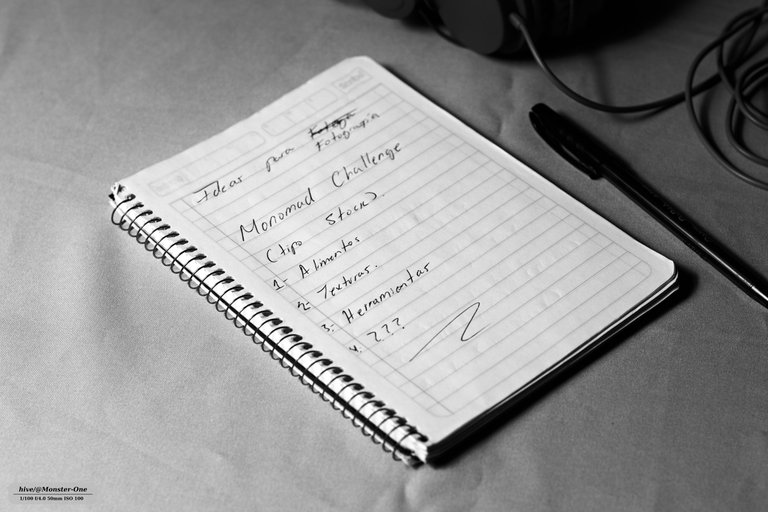 Scribe
Ideas para Fotografia
Monomad Challenge
(tipo Stock).
1- Alimentos
2- Texturas.
3- Herramientas
4. ???
hive/@Monster-One
1/100 f/4.0 50mm ISO 100